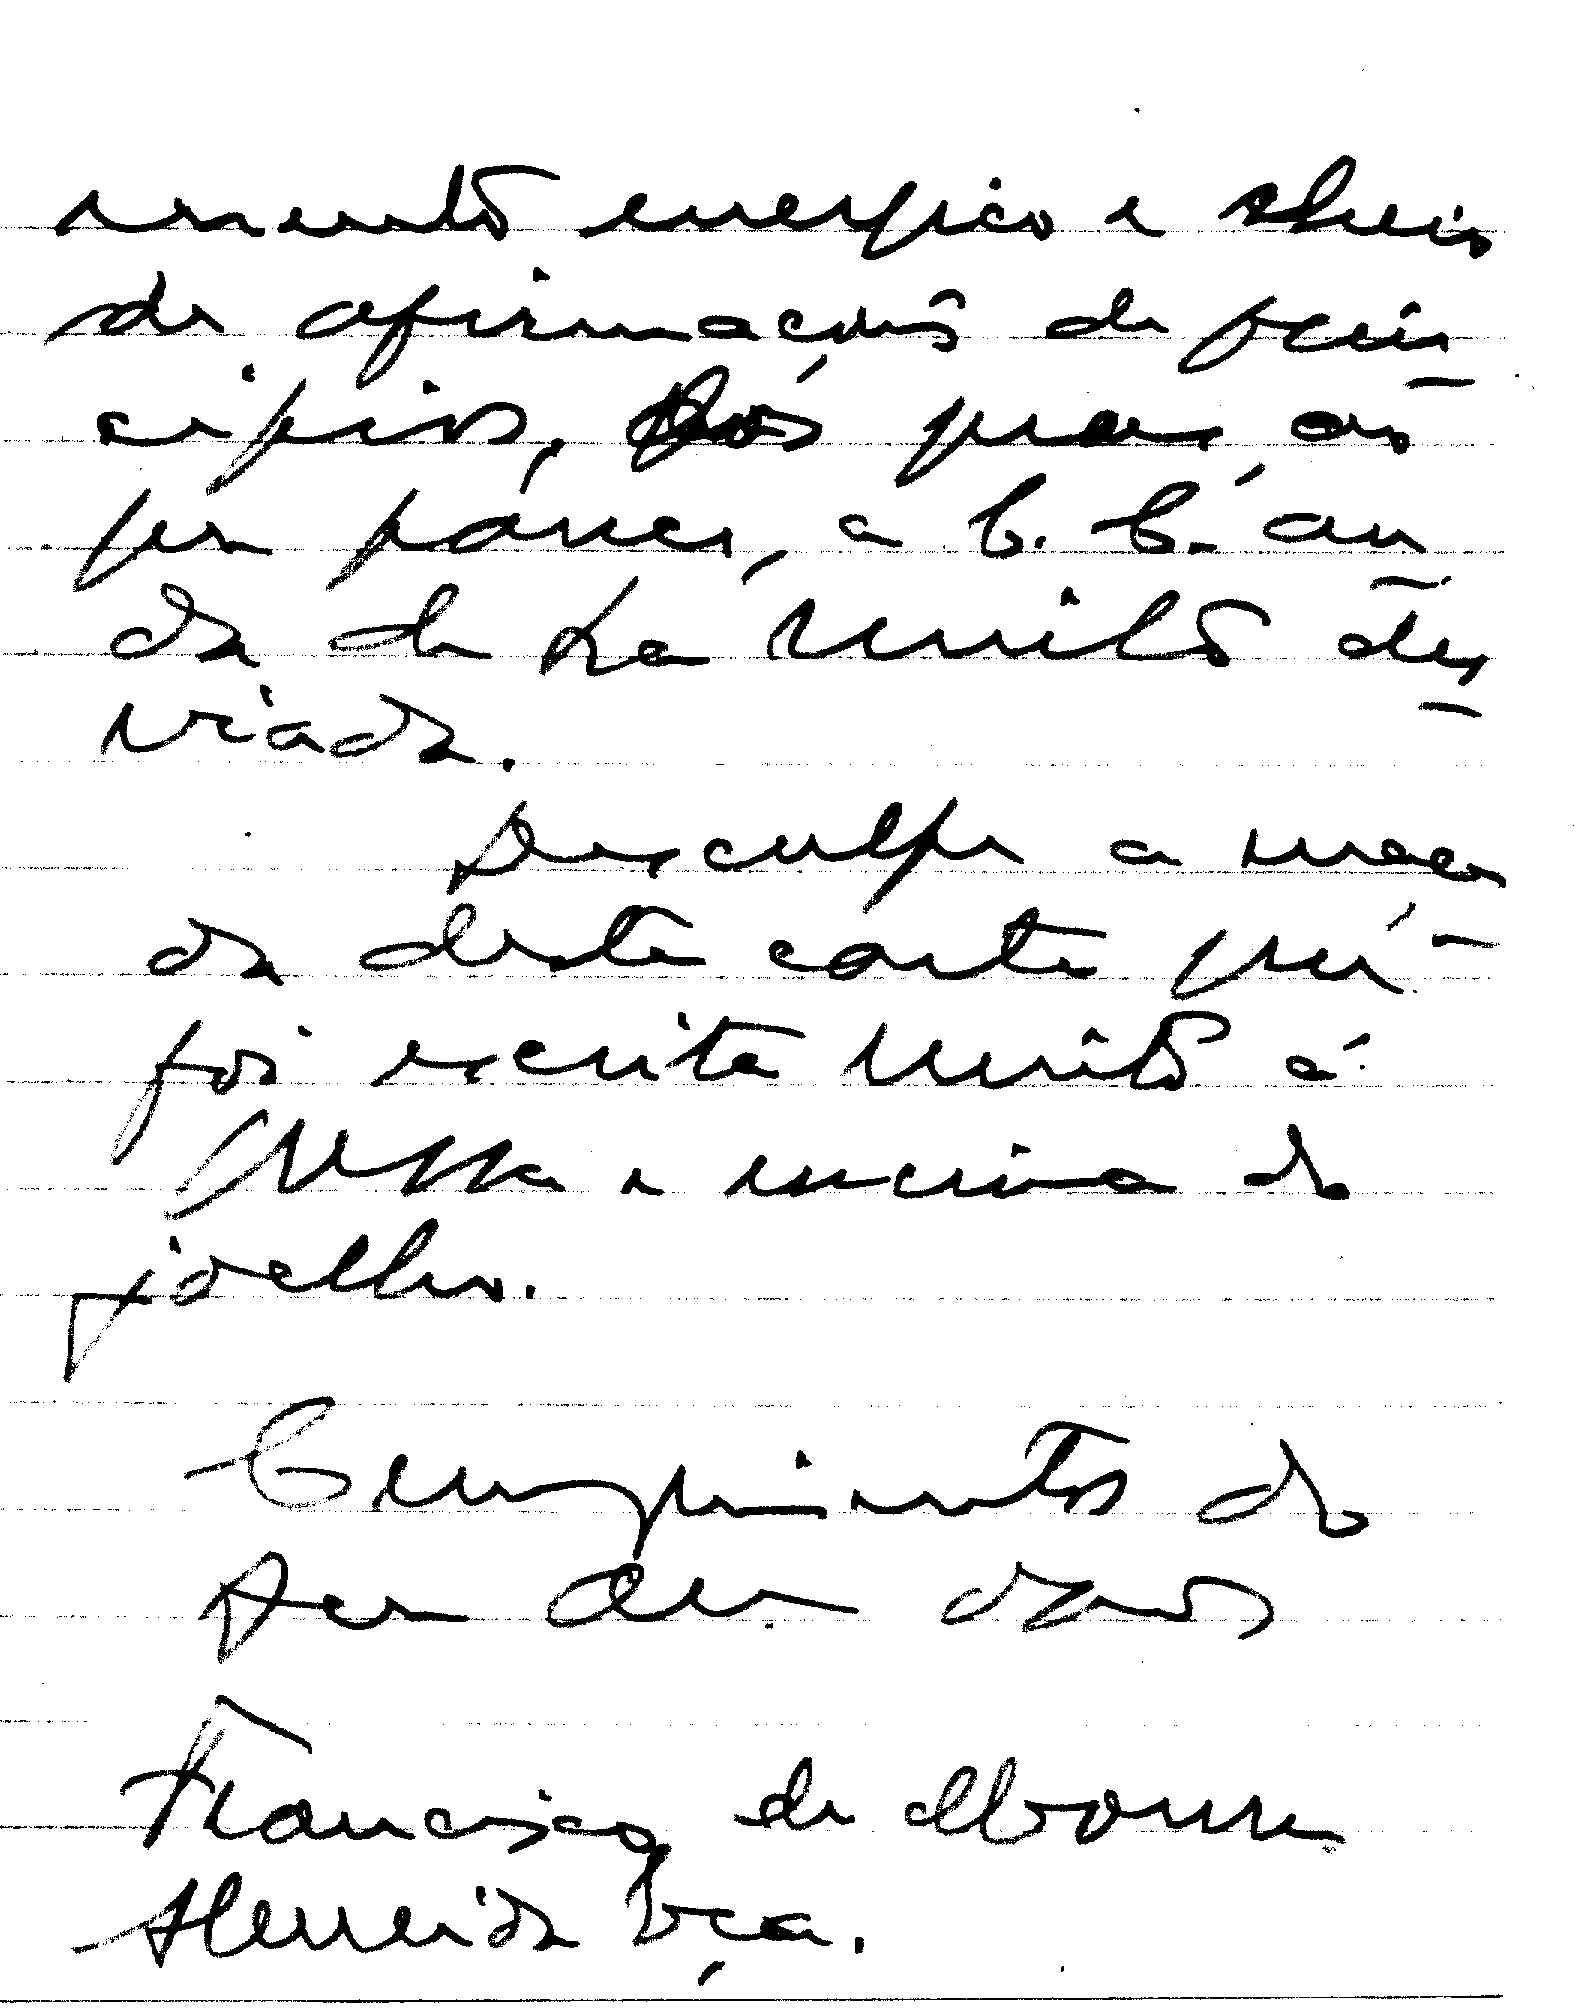 mento energico e cheio
de afirmações de prin
cipios, Pois para ās
que parece, a C. C. an
da de ha muito des
viada.
Desculpe a maça
da desta carta que
foi escrita muito á
pressa e em cima do
joelho.
Cumprimentos do
Francisco de Moura
Almeida Eça.